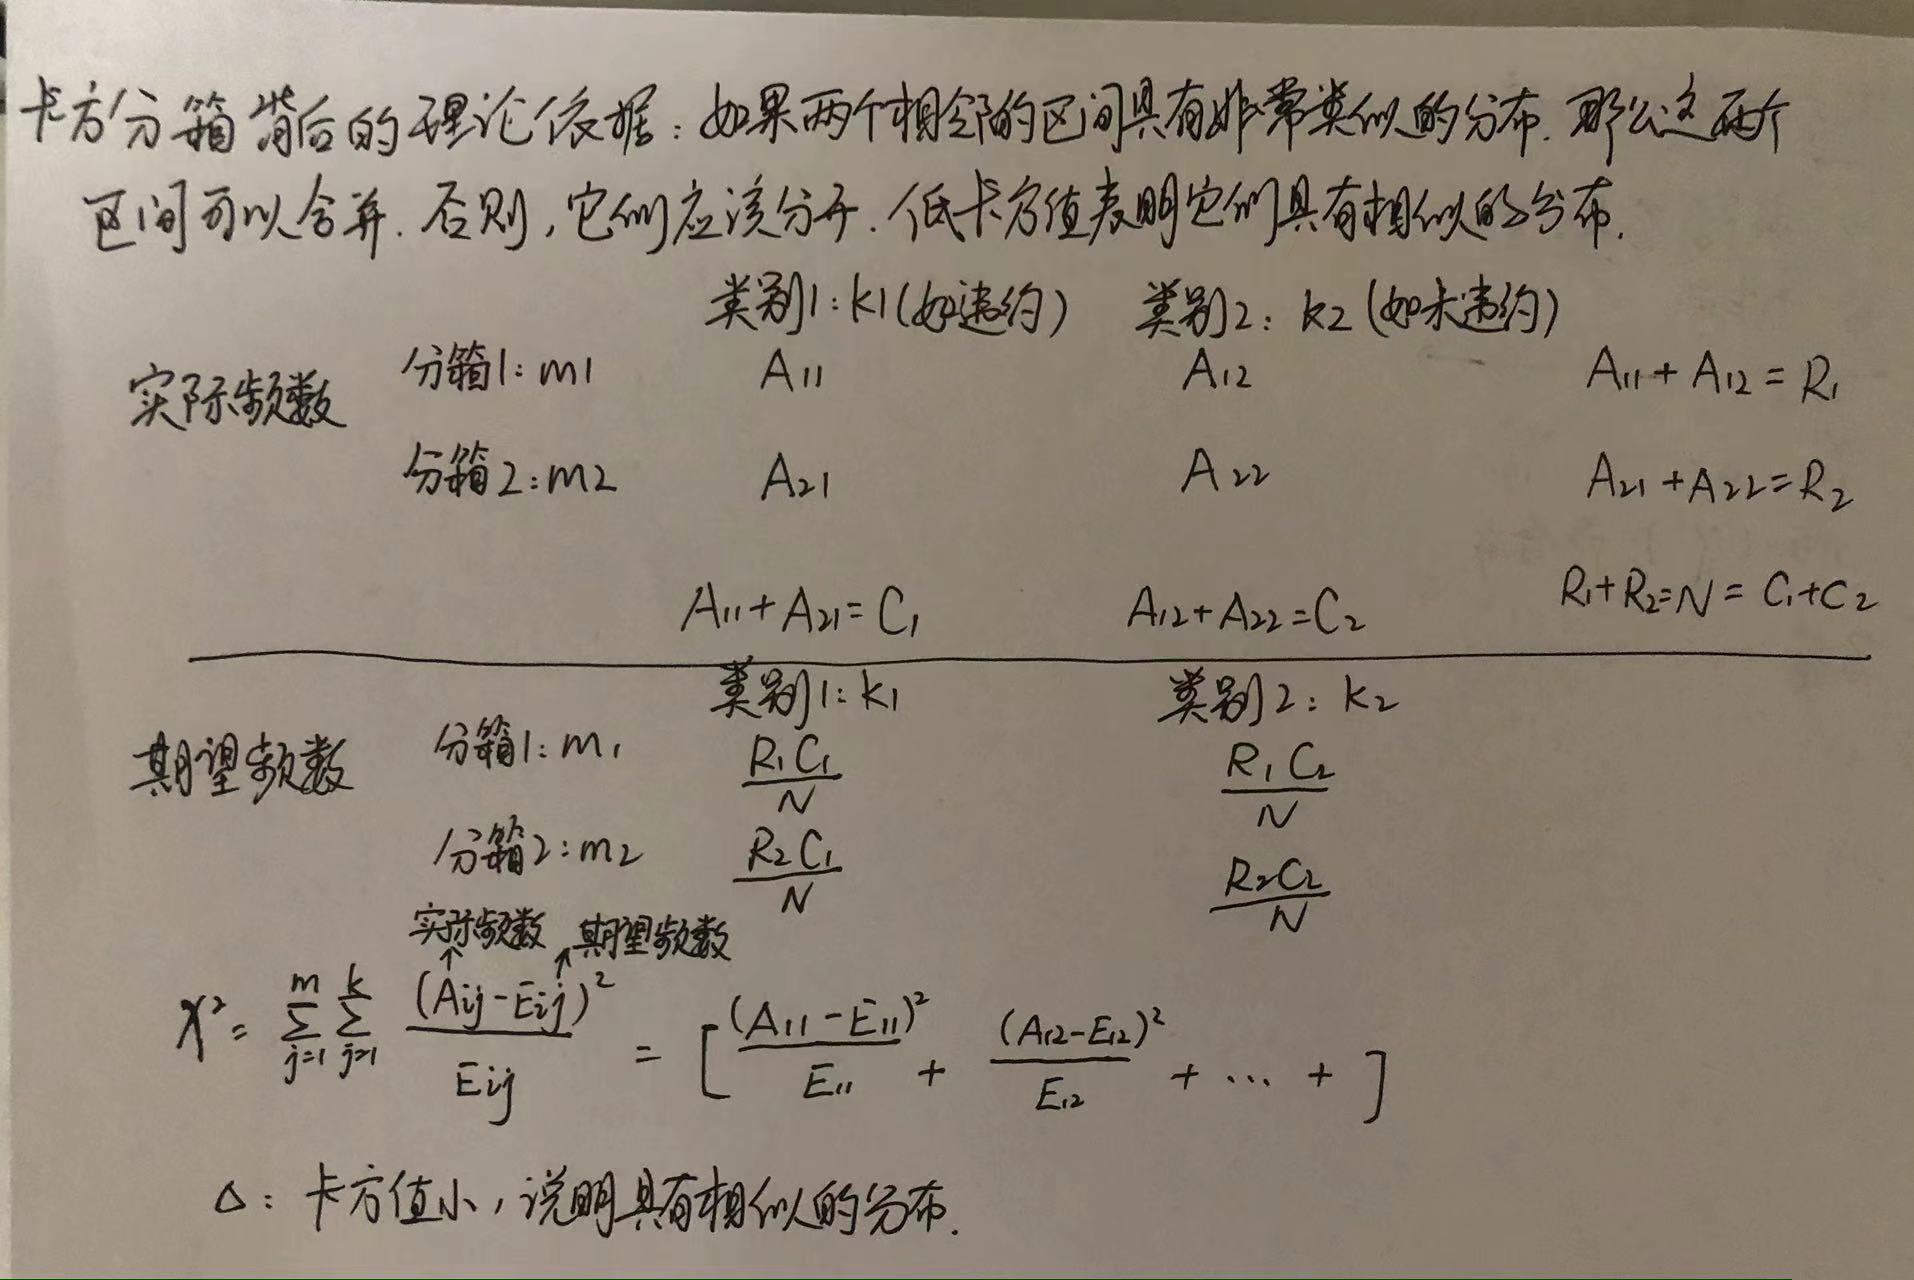 卡方分箱背后的理论依据：如果两个相邻的区间具有非常类似的分布．那么这两个
区间可以合并．否则，它们应该分开．低卡方值表明它们具有相似的分布．
类别1：k1（如违约） 类别2：k2（如未违约）
实际频数 分箱1：m1 A11 A12 A11+A12=R1
分箱2：m2 A21 A22 A21+A22=R2
A11+A21=C1 A12+A22=C2 R1+R2=N=C1+C2
类别1：k1 类别2：k2
期望频数 分箱1：m1 R1C1/N R1C2/N
分箱2：m2 R2C1/N R2C2/N
实际频数 期望频数
χ²= Σ(j=1→m) Σ(j=1→k) (Aij-Eij)²/Eij = [(A11-E11)²/E11 + (A12-E12)²/E12 + … + ]
△：卡方值小，说明具有相似的分布．